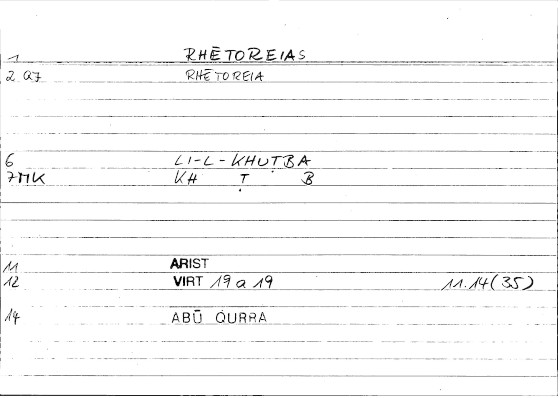 1 RHĒTOREIAS
2 a7 RHĒTOREIA
6 LI-L-KHUṬBA
7MK KH Ṭ B
11 ARIST
12 VIRT 19 a 19 11.14(35)
14 ABŪ QURRA